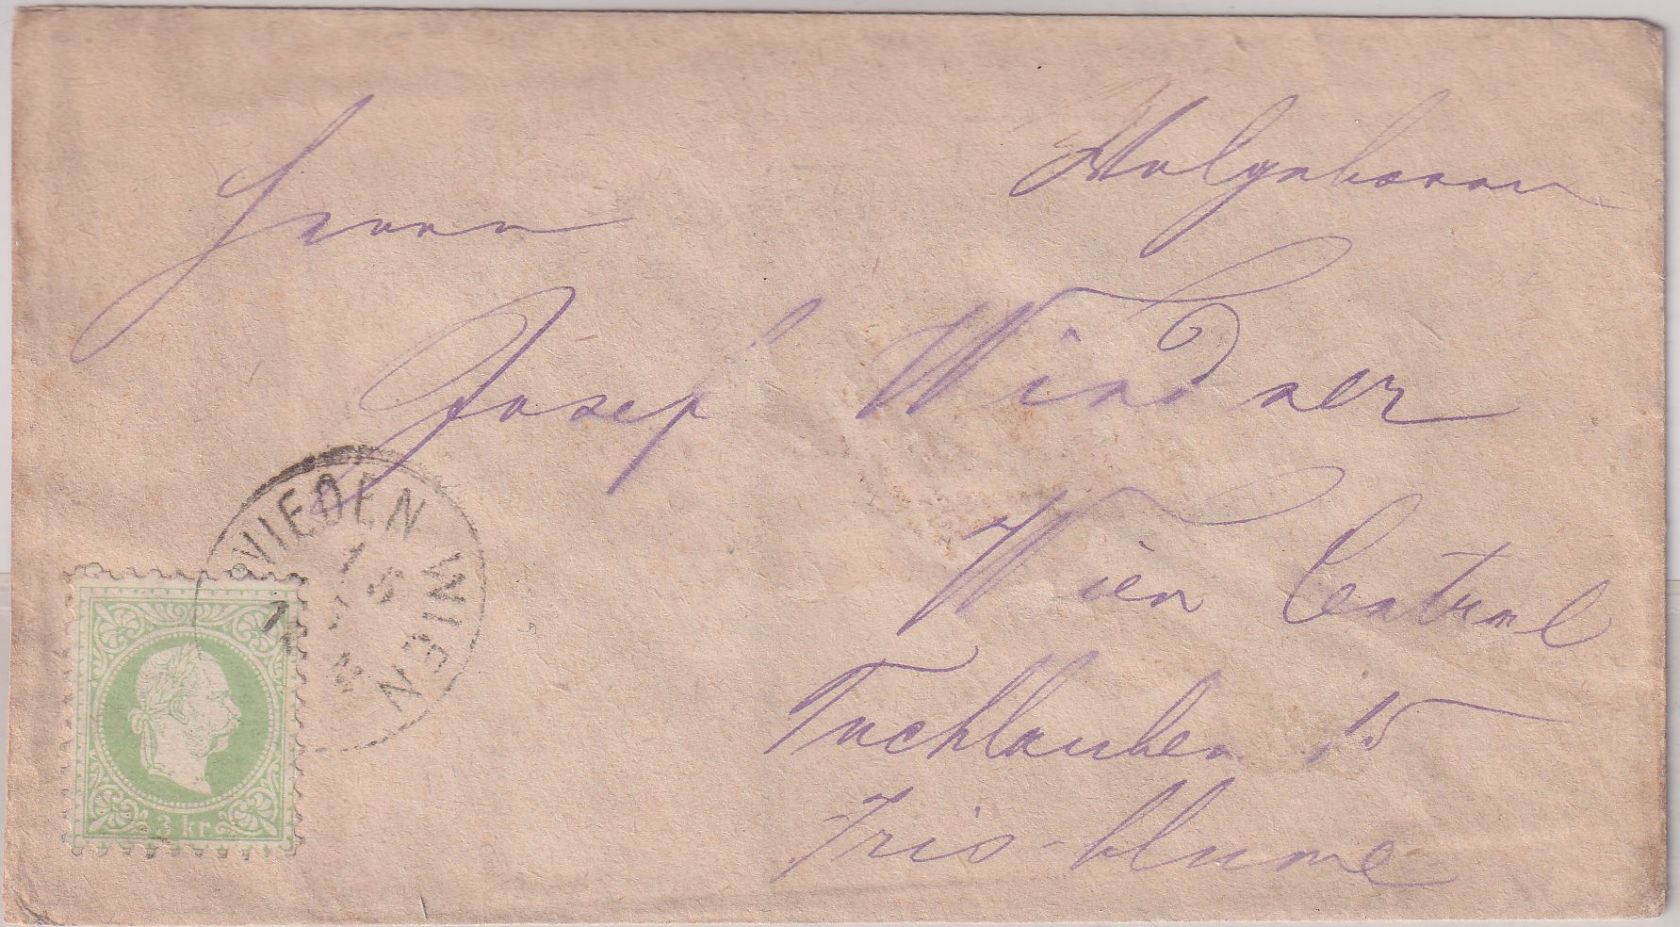 Herrn
Wolgeboren
Josef Windner
Wien Central
Tuchlauben 15
Iris-blume
WIEDEN WIEN
3 kr